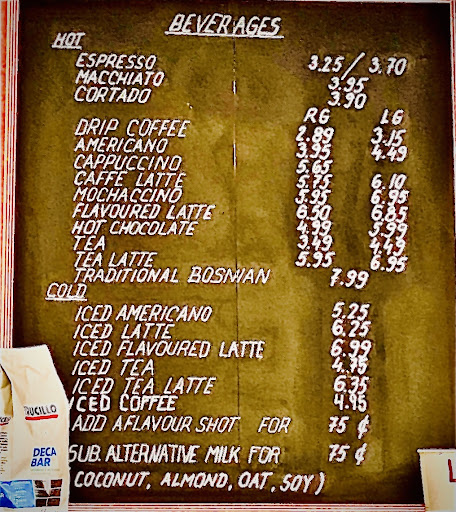 BEVERAGES
HOT
ESPRESSO 3.25 / 3.70
MACCHIATO 3.95
CORTADO 3.90
RG LG
DRIP COFFEE 2.89 3.15
AMERICANO 3.95 4.49
CAPPUCCINO 5.65
CAFFE LATTE 5.75 6.10
MOCHACCINO 5.95 6.95
FLAVOURED LATTE 6.50 6.85
HOT CHOCOLATE 4.99 5.99
TEA 3.49 4.49
TEA LATTE 5.95 6.95
TRADITIONAL BOSNIAN 7.99
COLD
ICED AMERICANO 5.25
ICED LATTE 6.25
ICED FLAVOURED LATTE 6.99
ICED TEA 4.75
ICED TEA LATTE 6.35
ICED COFFEE 4.95
ADD A FLAVOUR SHOT FOR 75 ¢
SUB. ALTERNATIVE MILK FOR 75 ¢
(COCONUT, ALMOND, OAT, SOY)
TRUCILLO
DECA
BAR
L